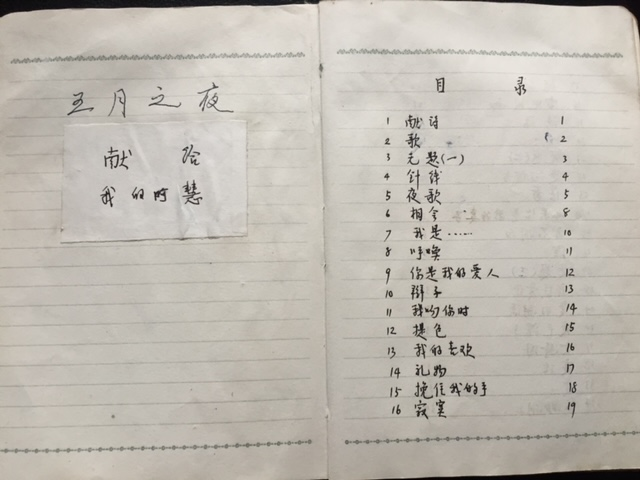 五月之夜
献 给
我的时慧
目 录
1 献诗 1
2 歌 2
3 无题(一) 3
4 针线 4
5 夜歌 5
6 相会 8
7 我是…… 10
8 呼唤 11
9 你是我的爱人 12
10 辫子 13
11 我吻你时 14
12 褪色 15
13 我的喜欢 16
14 礼物 17
15 挽住我的手 18
16 寂寞 19